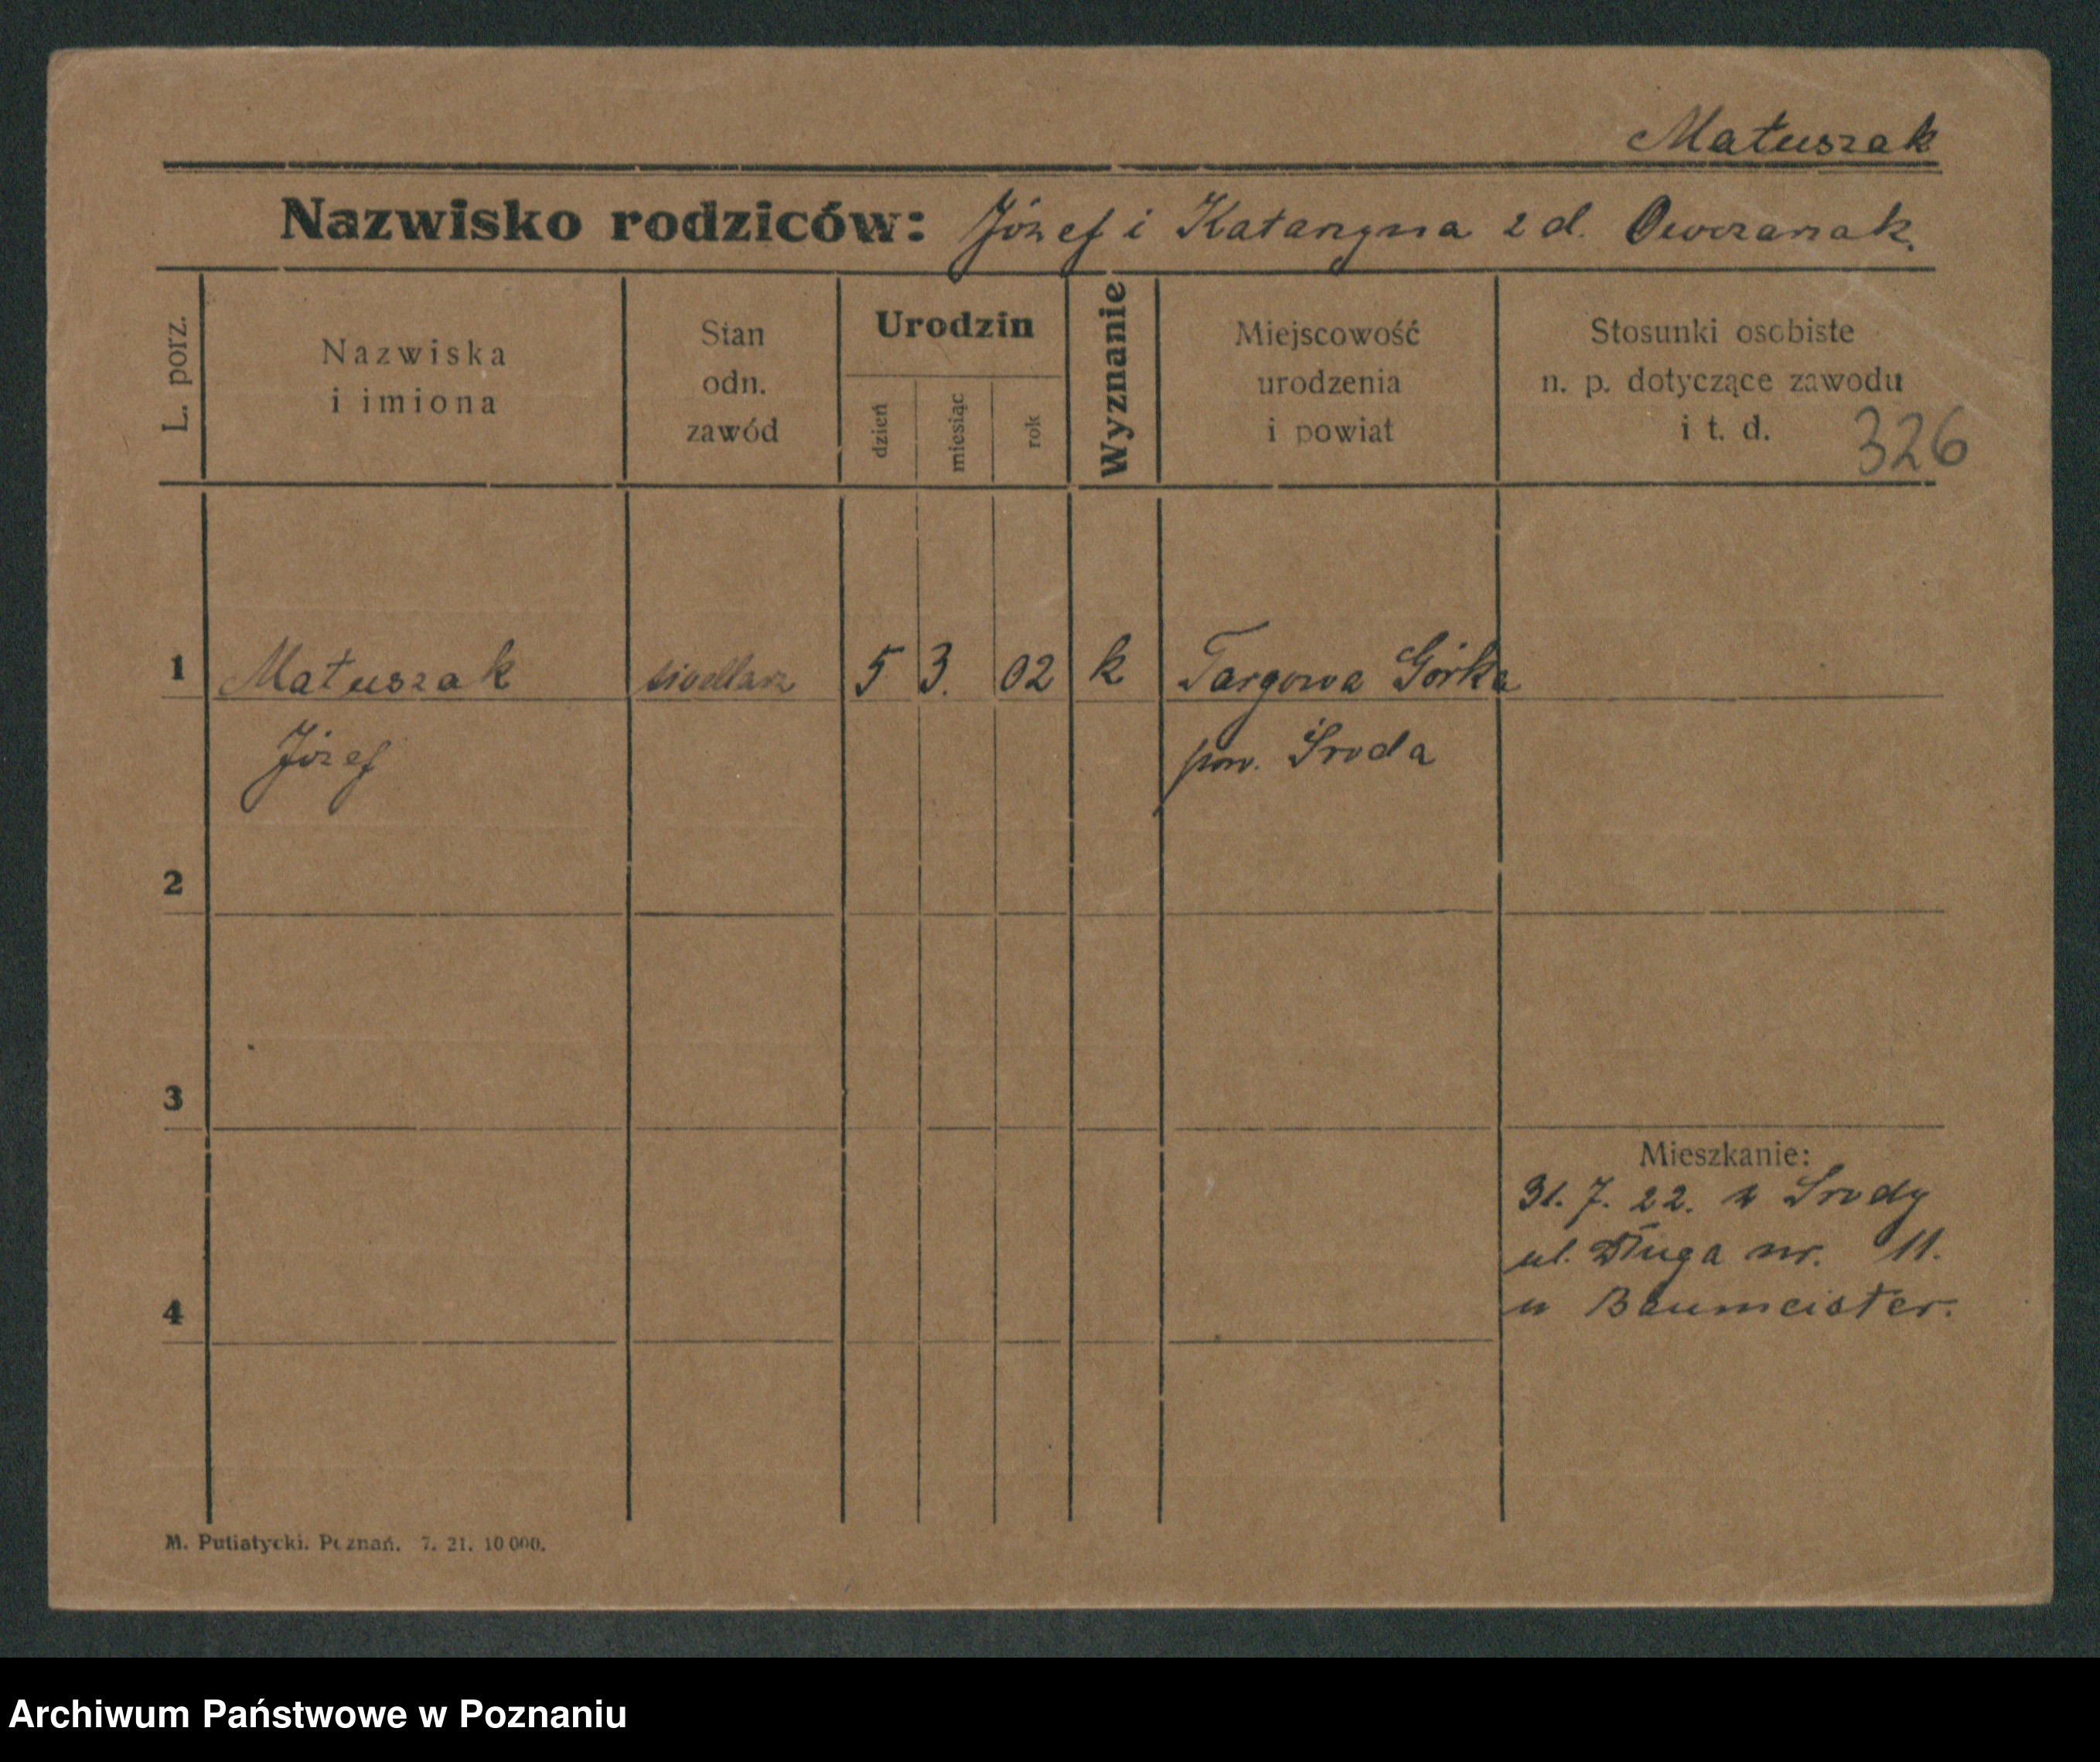 Matuszak
Nazwisko rodziców: Józef i Katarzyna z d. Owczarzak.
L. porz.
Nazwiska
i imiona
Stan
odn.
zawód
Urodzin
dzień
miesiąc
rok
Wyznanie
Miejscowość
urodzenia
i powiat
Stosunki osobiste
n. p. dotyczące zawodu
i t. d.
326
1 Matuszak 5 3. 02 k Targowa Górka
Józef pow. Środa
2
3
Mieszkanie:
31. 7. 22. z Środy
ul. Długa nr. 11.
4 u Baumeister.
M. Putiatycki. Poznań. 7. 21. 10 000.
Archiwum Państwowe w Poznaniu